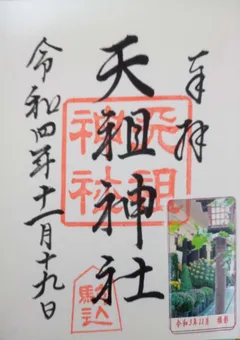 奉拝
天祖神社
天祖
神社
駒込
令和四年十一月十九日
令和3年11月 撮影